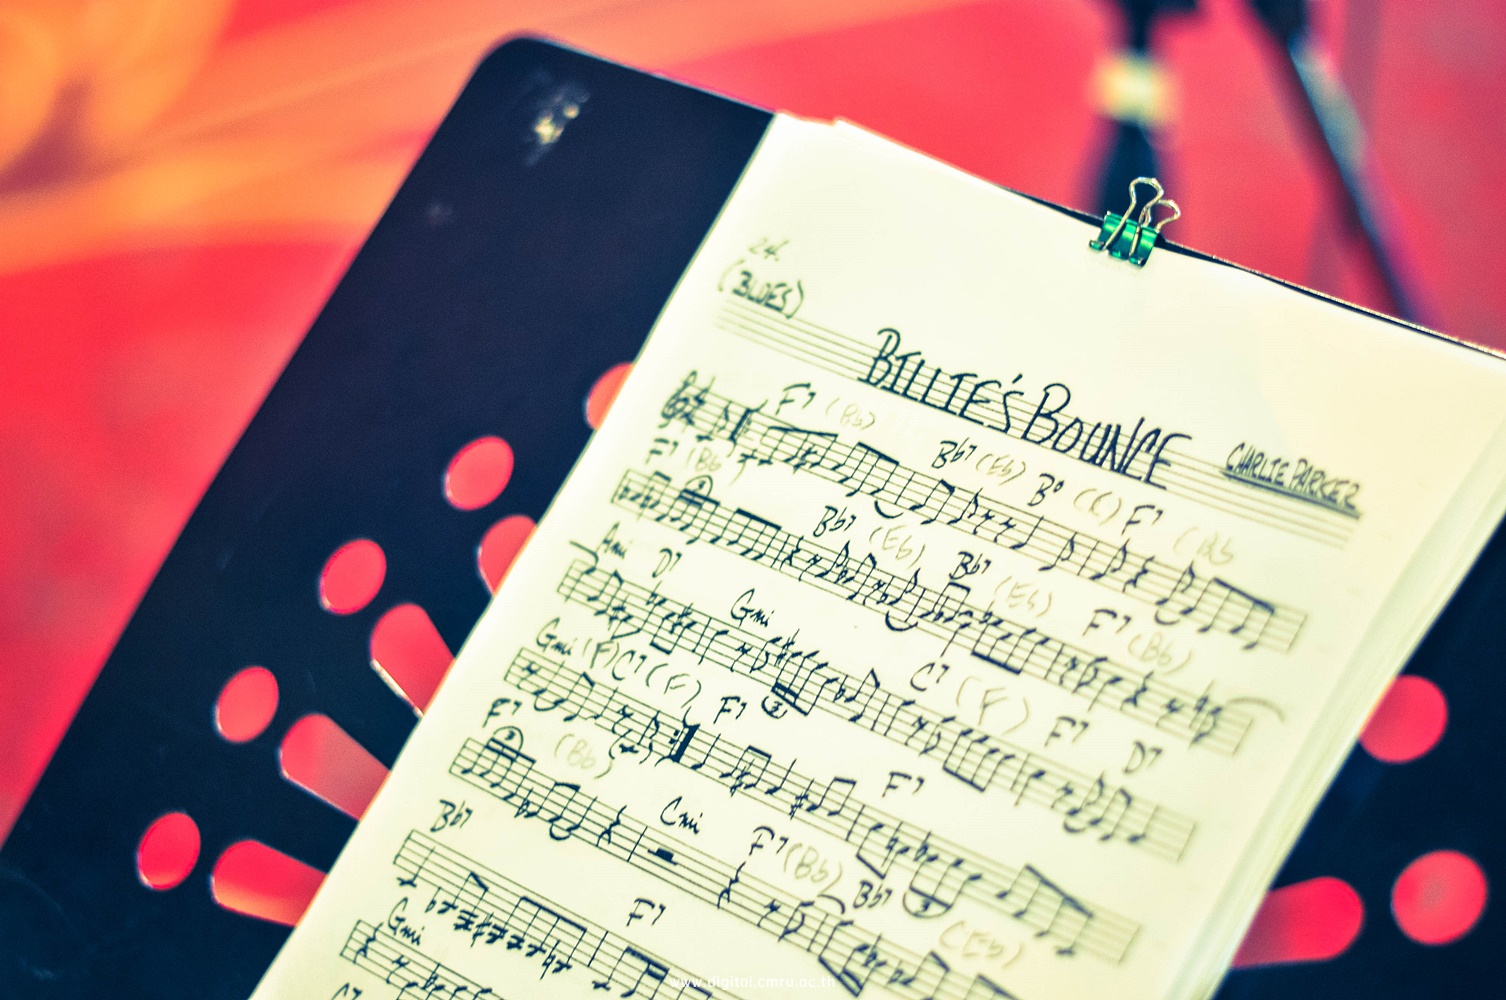 24.
(BLUES)
BILLIE'S BOUNCE
CHARLIE PARKER
F7 (Bb) Bb7 (Eb) B° F7 (Bb
F7 (Bb Bb7 (Eb) Bb7 (Eb) F7 (Bb)
Ami D7 Gmi C7 F7 D7
Gmi (F) C7 (F) F7 F7
F7 (Bb) Cmi F7 (Bb) Bb7 (Eb)
Bb7 F7
Gmi
C7
www.digital.cmru.ac.th